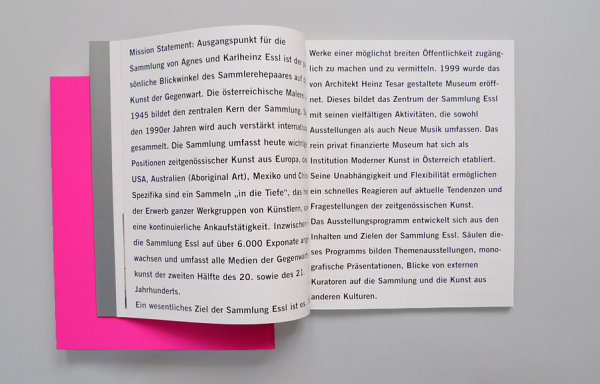 Mission Statement: Ausgangspunkt für die
Sammlung von Agnes und Karlheinz Essl ist der
sönliche Blickwinkel des Sammlerehepaares auf
Kunst der Gegenwart. Die österreichische Malerei
1945 bildet den zentralen Kern der Sammlung.
den 1990er Jahren wird auch verstärkt internation
gesammelt. Die Sammlung umfasst heute wichtige
Positionen zeitgenössischer Kunst aus Europa, de
USA, Australien (Aboriginal Art), Mexiko und Chi
Spezifika sind ein Sammeln „in die Tiefe“, das
der Erwerb ganzer Werkgruppen von Künstlern,
eine kontinuierliche Ankaufstätigkeit. Inzwischen
die Sammlung Essl auf über 6.000 Exponate ang
wachsen und umfasst alle Medien der Gegenwart
kunst der zweiten Hälfte des 20. sowie des 21.
Jahrhunderts.
Ein wesentliches Ziel der Sammlung Essl ist es,
Werke einer möglichst breiten Öffentlichkeit zugäng-
lich zu machen und zu vermitteln. 1999 wurde das
von Architekt Heinz Tesar gestaltete Museum eröff-
net. Dieses bildet das Zentrum der Sammlung Essl
mit seinen vielfältigen Aktivitäten, die sowohl
Ausstellungen als auch Neue Musik umfassen. Das
rein privat finanzierte Museum hat sich als
Institution Moderner Kunst in Österreich etabliert.
Seine Unabhängigkeit und Flexibilität ermöglichen
ein schnelles Reagieren auf aktuelle Tendenzen und
Fragestellungen der zeitgenössischen Kunst.
Das Ausstellungsprogramm entwickelt sich aus den
Inhalten und Zielen der Sammlung Essl. Säulen die-
ses Programms bilden Themenausstellungen, mono-
grafische Präsentationen, Blicke von externen
Kuratoren auf die Sammlung und die Kunst aus
anderen Kulturen.